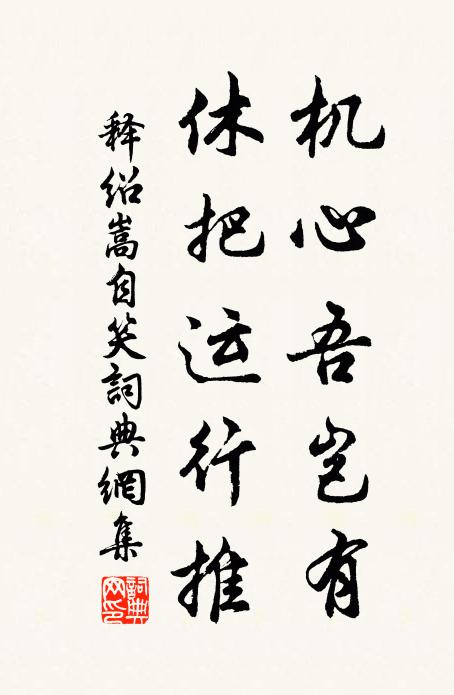 机心吾岂有
休把运行推
释绍嵩自笑詞典網集
詞典
网印